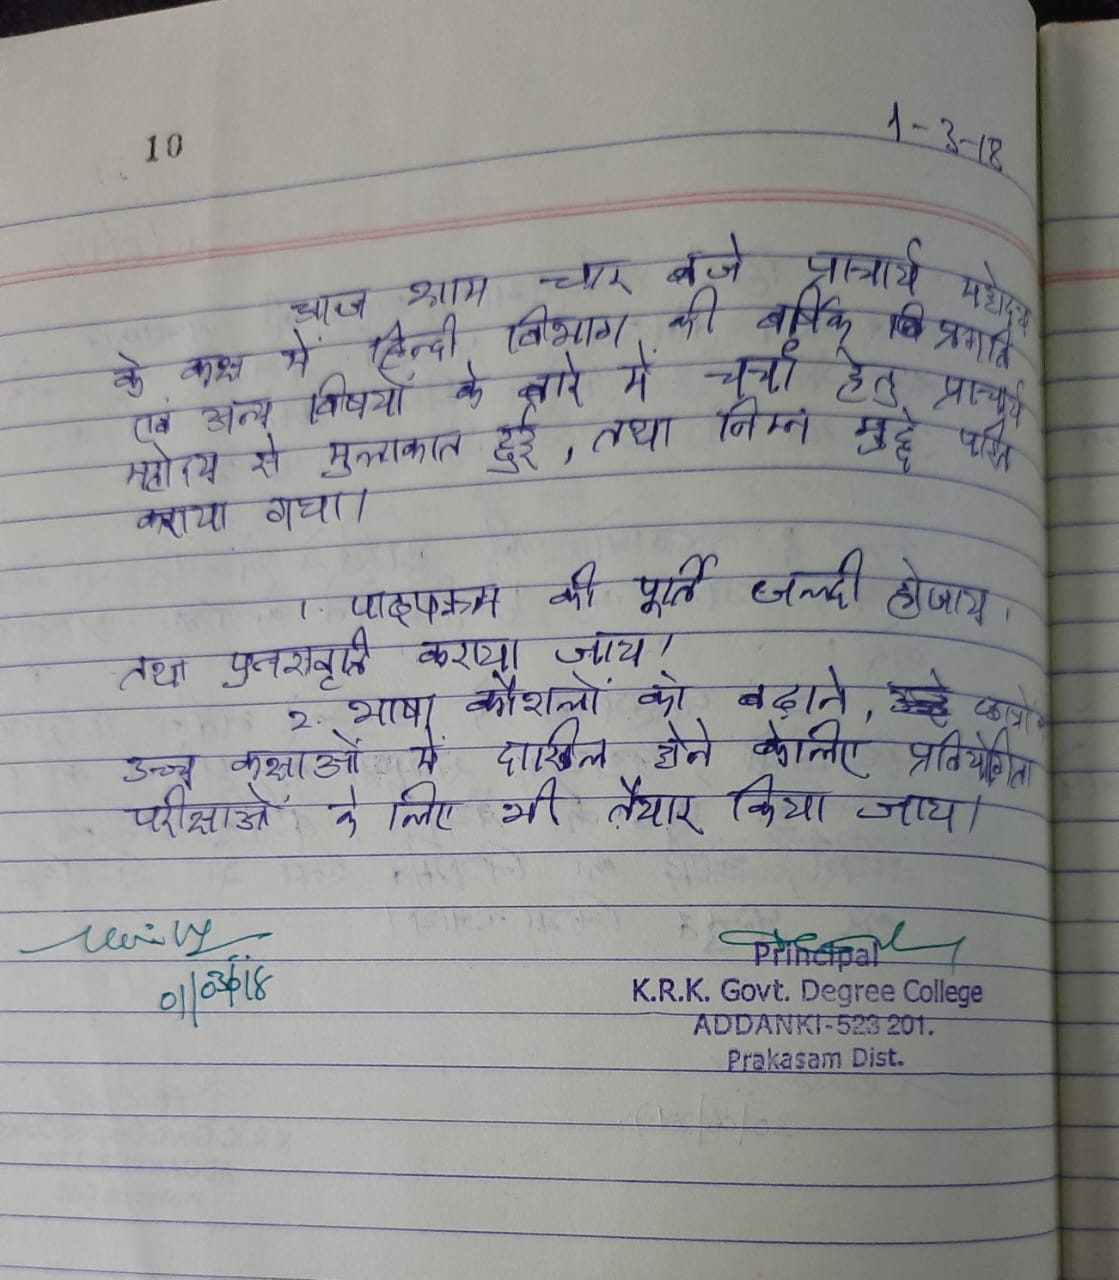 10
1-3-18
आज शाम चार बजे प्राचार्य महोदय
के कक्ष में हिन्दी विभाग की वार्षिक प्रगति
एवं अन्य विषयों के बारे में चर्चा हेतु प्राचार्य
महोदय से मुलाकात हुई, तथा निम्न मुद्दे पारित
कराया गया।
1. पाठ्यक्रम की पूर्ति जल्दी होजाय,
तथा पुनरावृत्ति कराया जाय।
2. भाषा कौशलों को बढ़ाने,
उच्च कक्षाओं में दाखिल होने केलिए प्रतियोगिता
परीक्षाओं के लिए भी तैयार किया जाय।
01/03/18
Principal
K.R.K. Govt. Degree College
ADDANKI-523 201.
Prakasam Dist.